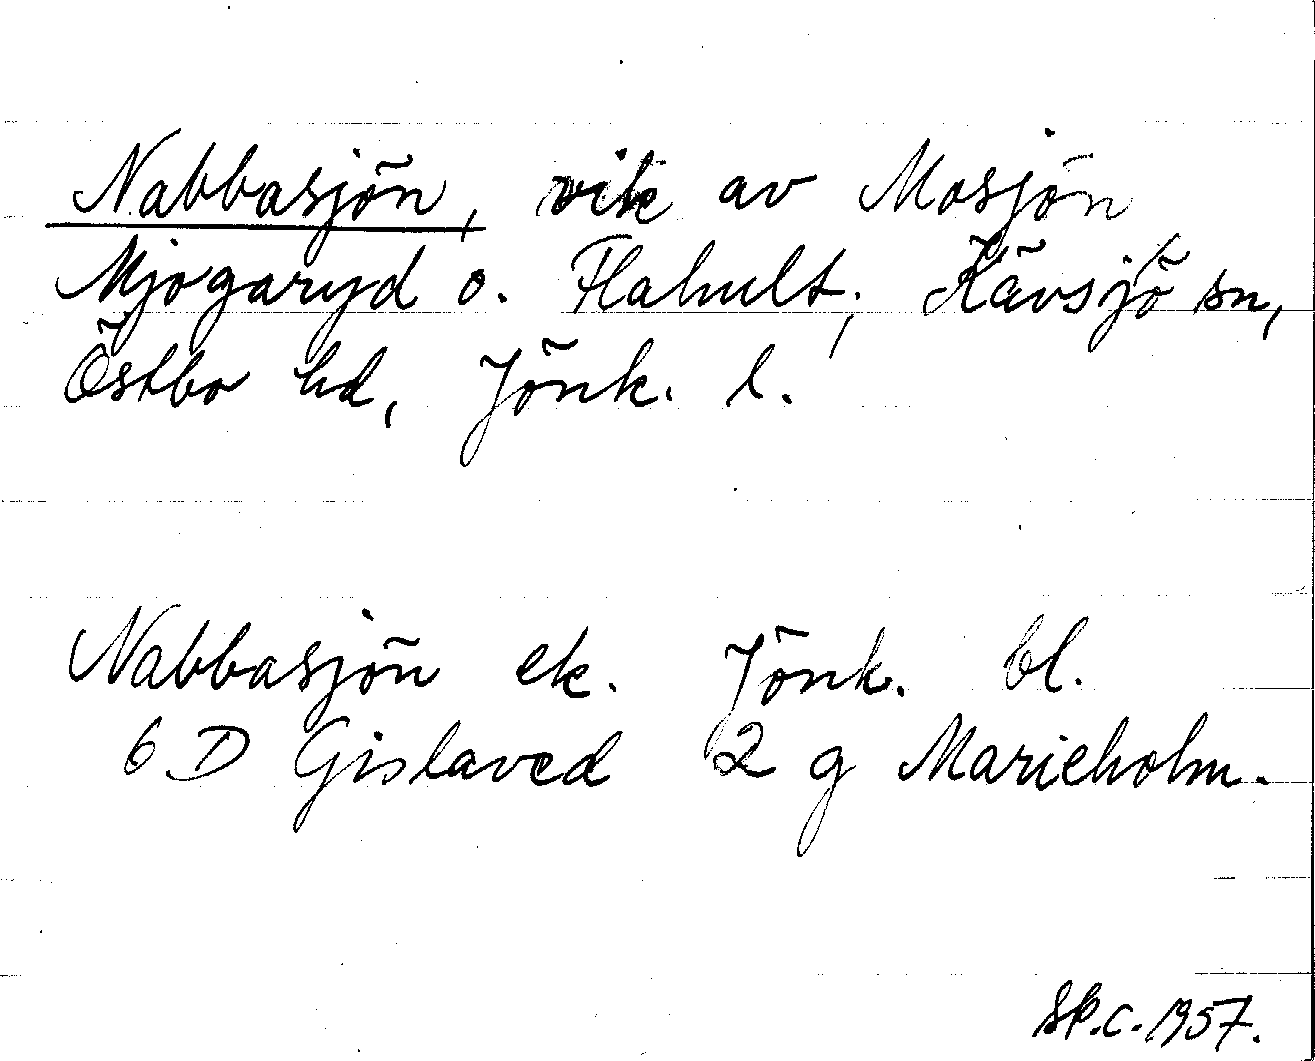 Nabbasjön, vik av Mosjön
Mjogaryd o. Flahult, Kävsjö sn,
Östbo hd, Jönk. l.
Nabbasjön ek. Jönk. bl.
6 D Gislaved 2 g Marieholm.
Sp.c. 1957.